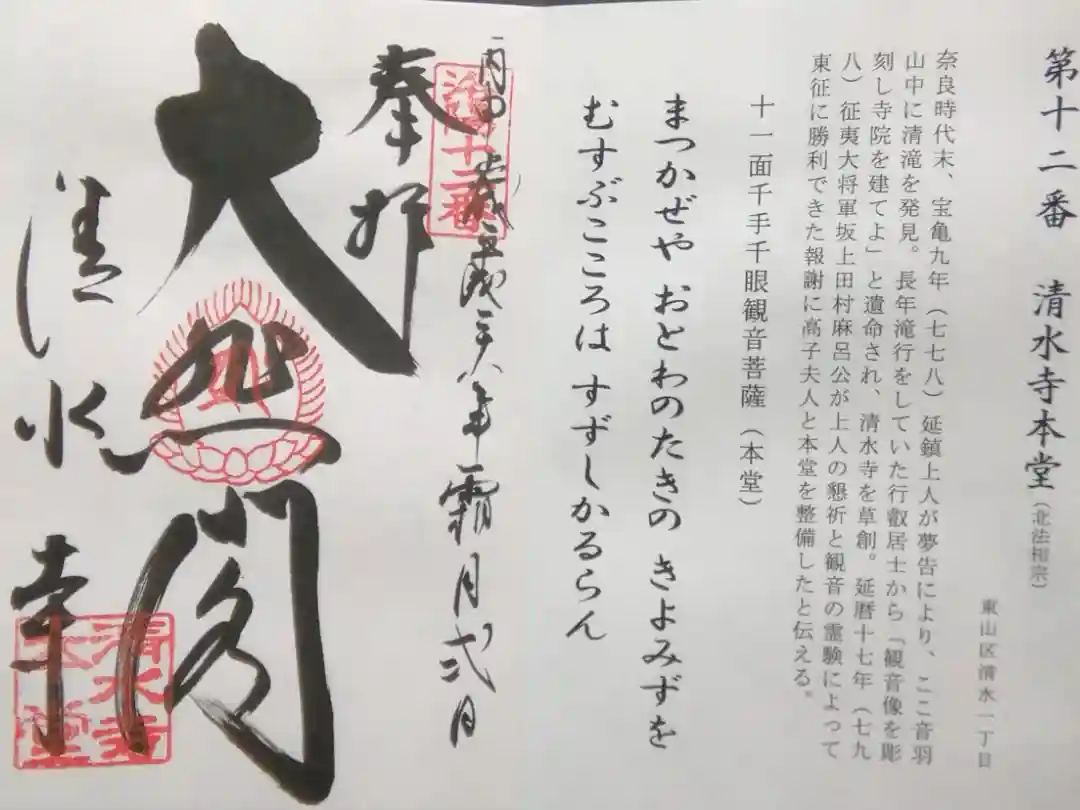 第十二番 清水寺本堂（北法相宗）
東山区清水一丁目
奈良時代末、宝亀九年（七七八）延鎮上人が夢告により、ここ音羽
山中に清滝を発見。長年滝行をしていた行叡居士から「観音像を彫
刻し寺院を建てよ」と遺命され、清水寺を草創。延暦十七年（七九
八）征夷大将軍坂上田村麻呂公が上人の懇祈と観音の霊験によって
東征に勝利できた報謝に高子夫人と本堂を整備したと伝える。
十一面千手千眼観音菩薩（本堂）
まつかぜや おとわのたきの きよみずを
むすぶこころは すずしかるらん
丙申歳平成二八年霜月弐日
奉拝
洛陽十二番
大悲閣
清水寺
清水寺
本堂